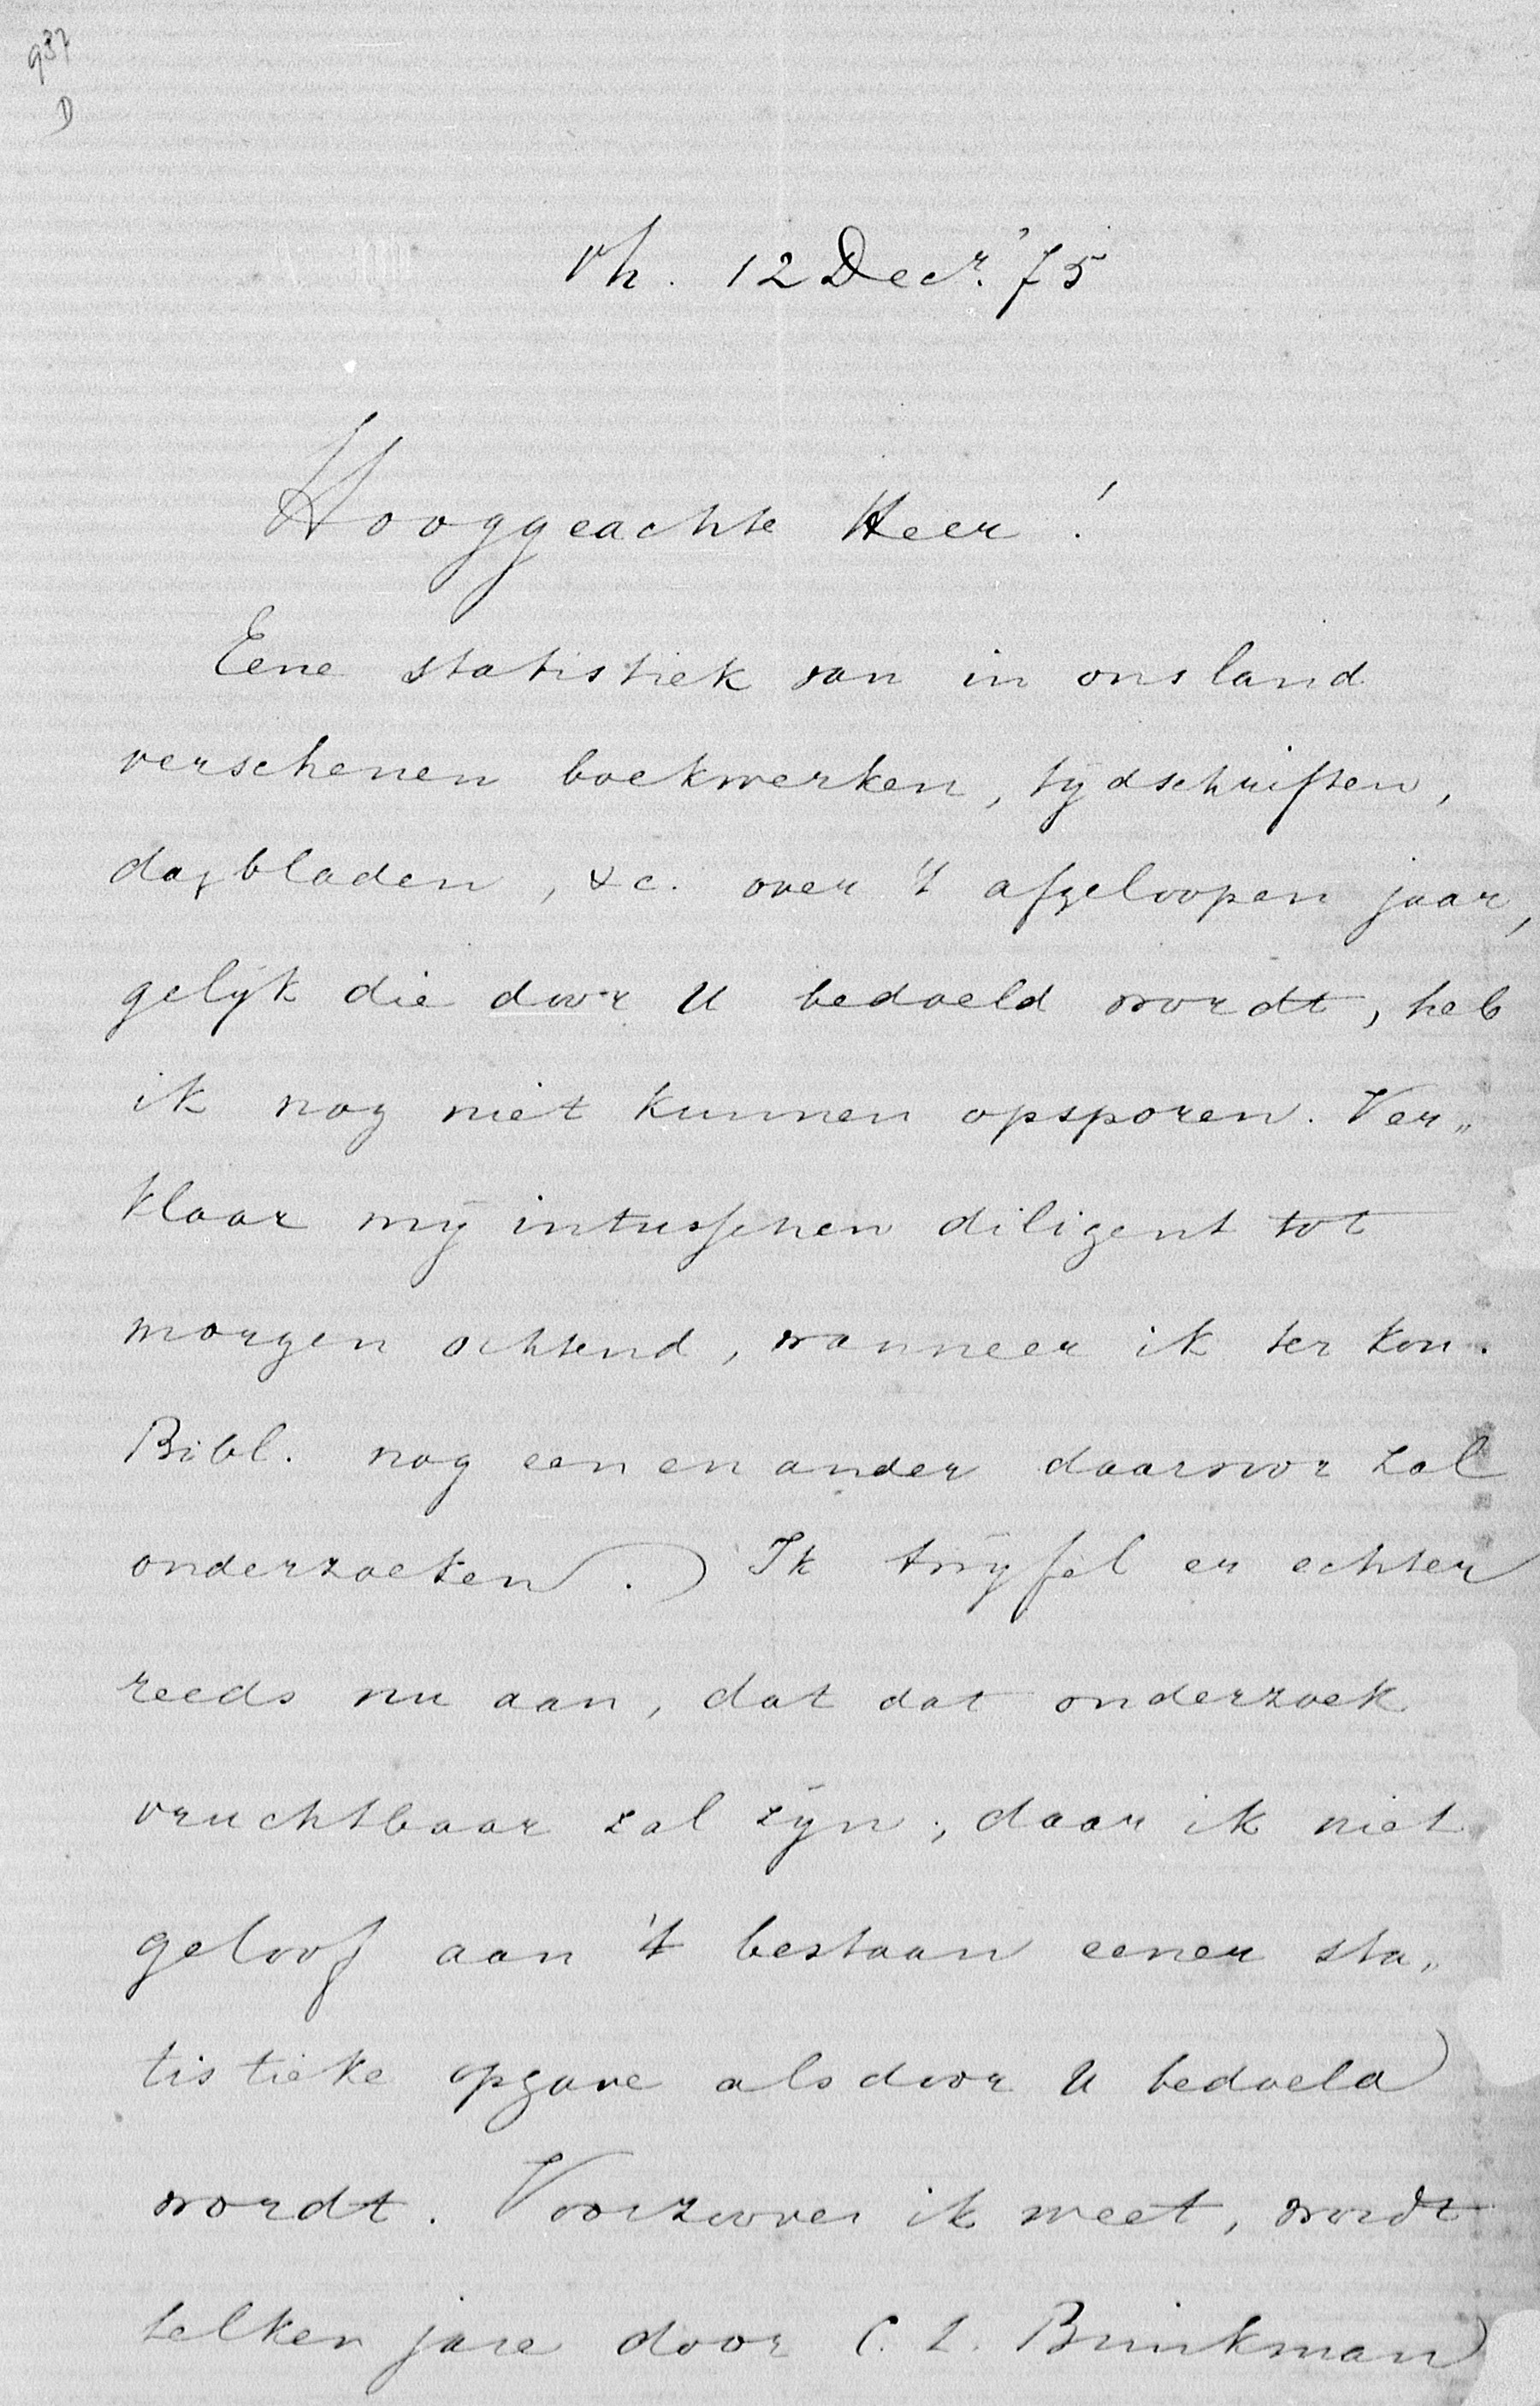 937
D
vh. 12 Decr. '75
Hooggeachte Heer!
Eene statistiek van in ons land
verschenen boekwerken, tijdschriften,
dagbladen, &c. over 't afgeloopen jaar,
gelijk die door U bedoeld wordt, heb
ik nog niet kunnen opsporen. Ver„
klaar mij intusschen diligent tot
morgen ochtend, wanneer ik ter Kon.
Bibl. nog een en ander daarvoor zal
onderzoeken. Ik twijfel er echter
reeds nu aan, dat dat onderzoek
vruchtbaar zal zijn, daar ik niet
geloof aan 't bestaan eener sta„
tistieke opgave als door U bedoeld
wordt. Voorzoover ik weet, wordt
telken jare door C. L. Brinkman